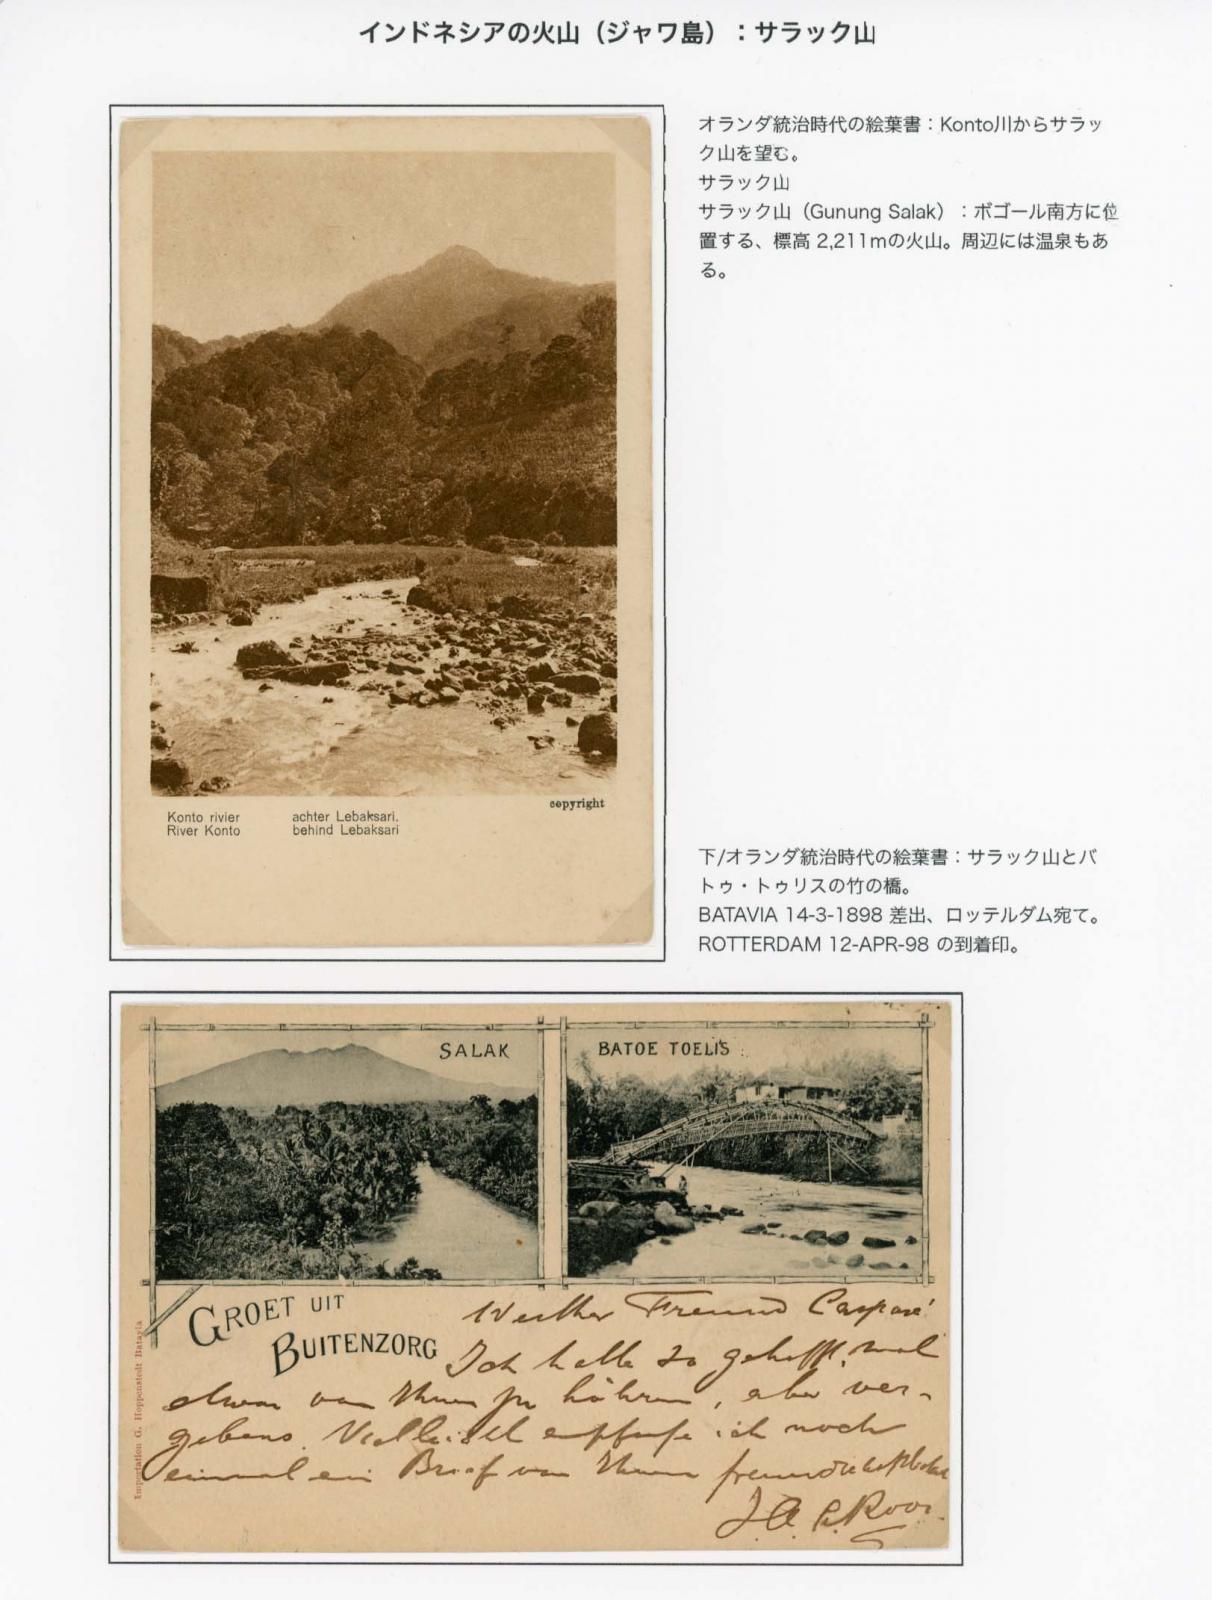 インドネシアの火山（ジャワ島）：サラック山
オランダ統治時代の絵葉書：Konto川からサラッ
ク山を望む。
サラック山
サラック山（Gunung Salak）：ボゴール南方に位
置する、標高 2,211mの火山。周辺には温泉もあ
る。
copyright
Konto rivier achter Lebaksari.
River Konto behind Lebaksari
下/オランダ統治時代の絵葉書：サラック山とバ
トゥ・トゥリスの竹の橋。
BATAVIA 14-3-1898 差出、ロッテルダム宛て。
ROTTERDAM 12-APR-98 の到着印。
SALAK
BATOE TOELIS
GROET UIT
BUITENZORG
Importation G. Hoppenstedt Batavia
Werther Freund
Ich hatte so gehofft, mal
etwas von Ihnen zu höhren, aber ver-
gebens. Vielleicht empfange ich noch
einmal ein Brief von Ihnen